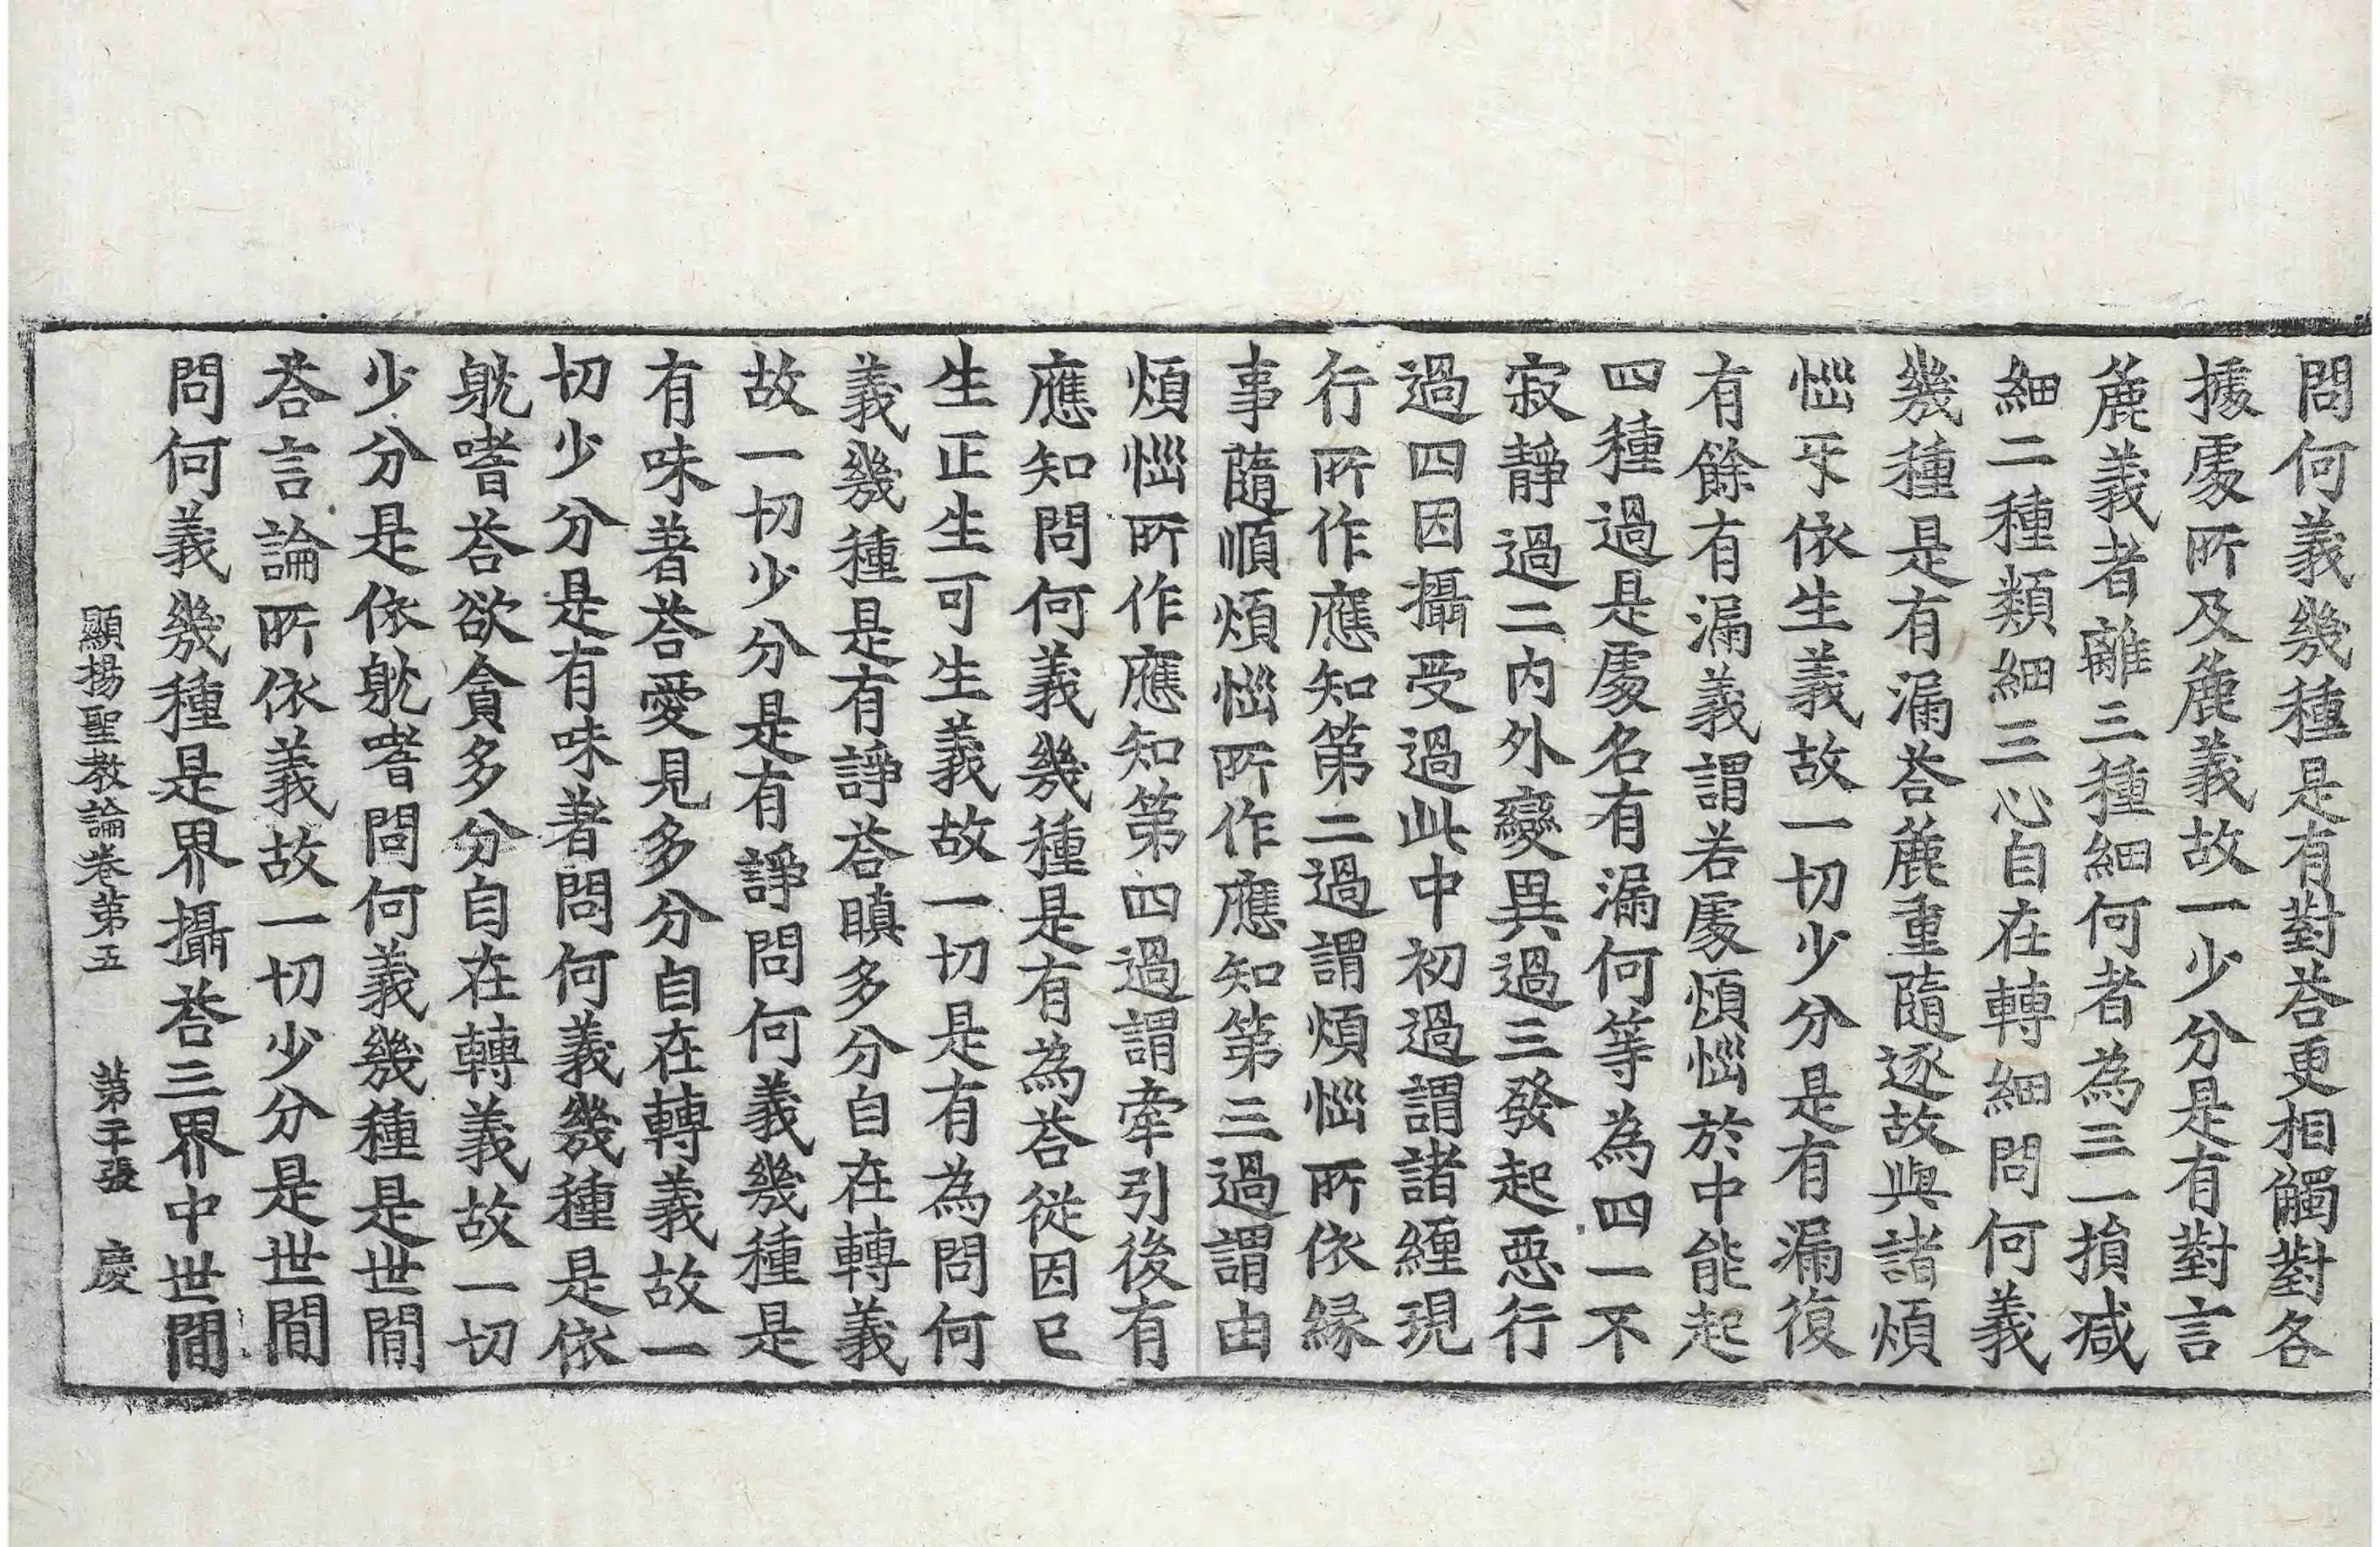 問何義幾種是有對荅更相觸對各
據處所及麁義故一少分是有對言
麁義者離三種細何者為三一損减
細二種類細三心自在轉細問何義
幾種是有漏荅麁重隨逐故與諸煩
惱互依生義故一切少分是有漏復
有餘有漏義謂若處煩惱於中能起
四種過是處名有漏何等為四一不
寂靜過二內外變異過三發起惡行
過四因攝受過此中初過謂諸纏現
行所作應知第二過謂煩惱所依緣
事隨順煩惱所作應知第三過謂由
煩惱所作應知第四過謂牽引後有
應知問何義幾種是有為荅從因已
生正生可生義故一切是有為問何
義幾種是有諍荅瞋多分自在轉義
故一切少分是有諍問何義幾種是
有味著荅愛見多分自在轉義故一
切少分是有味著問何義幾種是依
躭嗜荅欲貪多分自在轉義故一切
少分是依躭嗜問何義幾種是世間
荅言論所依義故一切少分是世間
問何義幾種是界攝荅三界中世間
顯揚聖教論卷第五 第二十張 慶